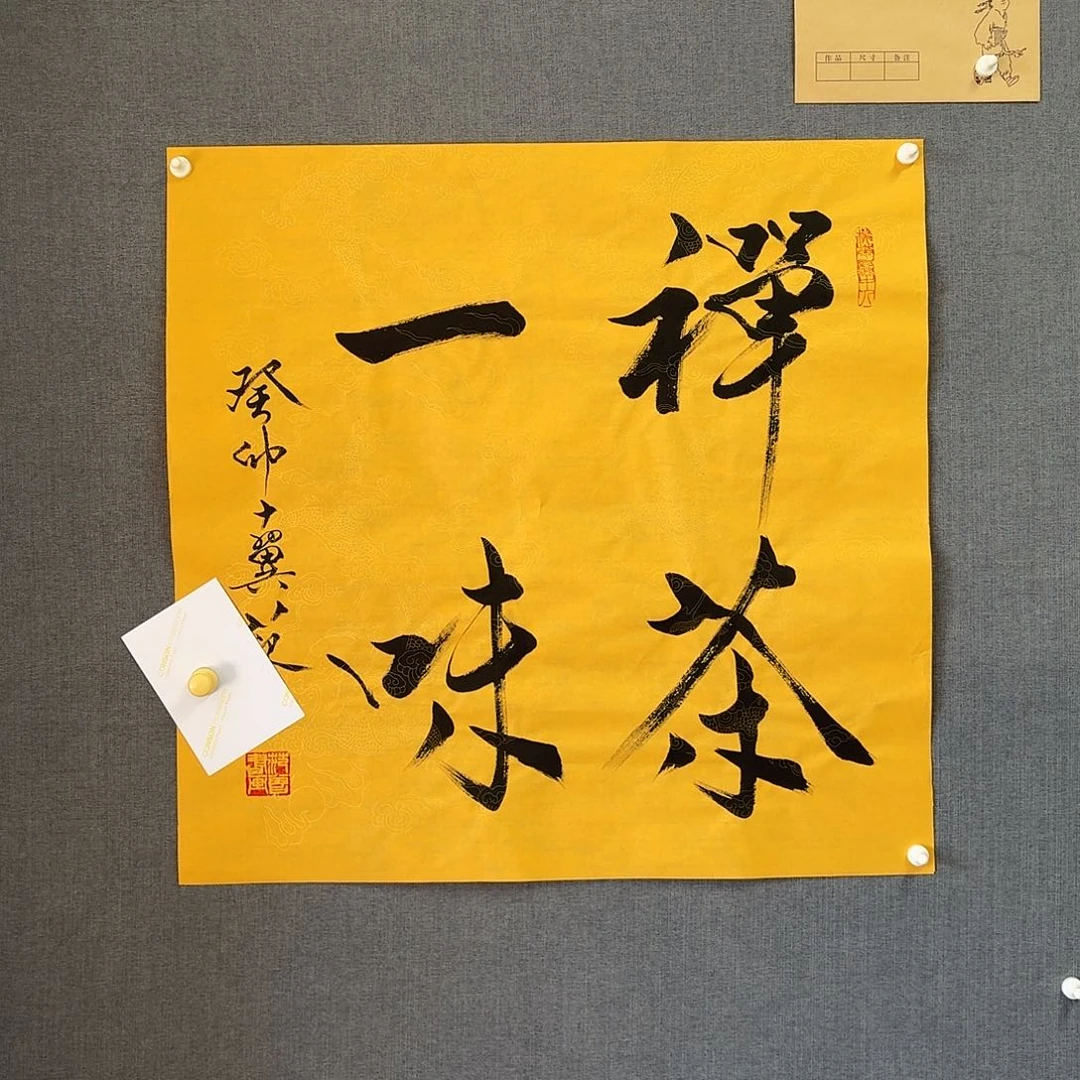 禪茶
一味
癸卯十翼
作品 尺寸 备注